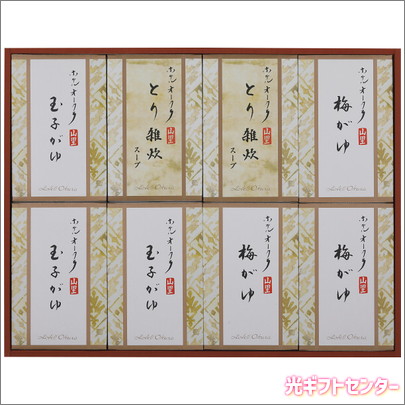 ホテルオークラ
山里
玉子がゆ
Hotel Okura
ホテルオークラ
山里
とり雑炊
スープ
ホテルオークラ
山里
とり雑炊
スープ
ホテルオークラ
山里
梅がゆ
Hotel Okura
ホテルオークラ
山里
玉子がゆ
Hotel Okura
ホテルオークラ
山里
玉子がゆ
Hotel Okura
ホテルオークラ
山里
梅がゆ
Hotel Okura
ホテルオークラ
山里
梅がゆ
Hotel Okura
光ギフトセンター